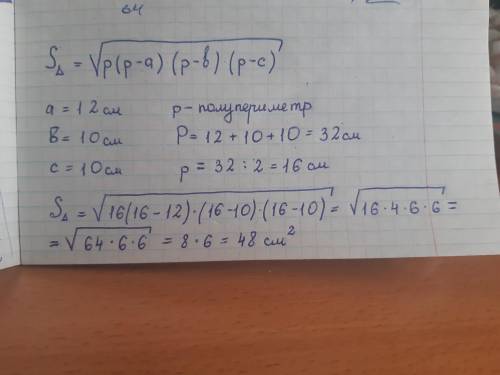 64
S△ = √p(p-a) (p-b) (p-c)
a = 12 см p - полупериметр
b = 10 см P = 12 + 10 + 10 = 32 см
c = 10 см p = 32 : 2 = 16 см
S△ = √16(16-12)·(16-10)·(16-10) = √16·4·6·6 =
= √64·6·6 = 8·6 = 48 см²